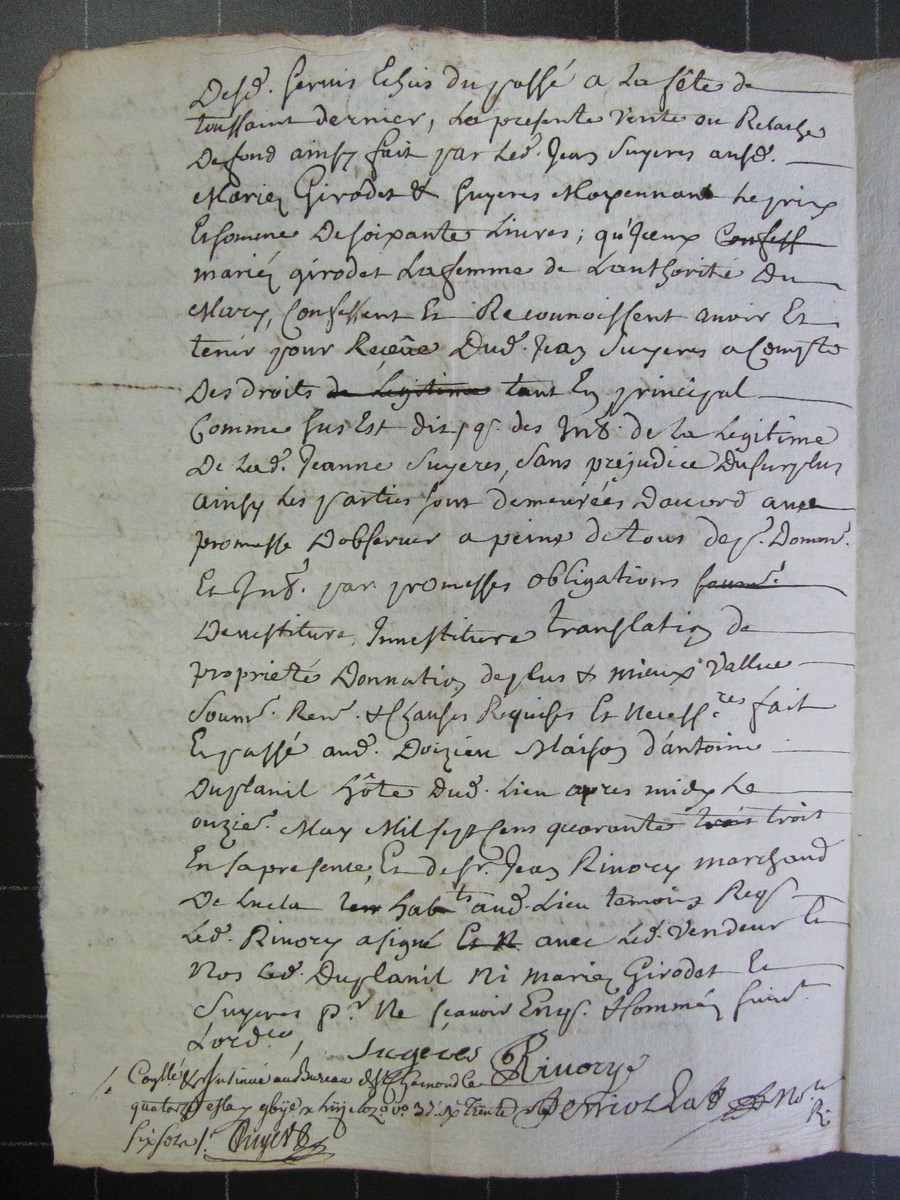 Desd. servis Echus du passé a La fête de
toussaint dernier, La presente Vente ou Relache
De fond ainsy fait par Led. Jean Suyeres ausd.
Mariez Girodet & Suyeres Moyennant Le prix
Et somme De soixante Livres; qu'Iceux Confess
mariés girodet La femme de Lauthorité Du
Mary, Confessent Et Reconnoissent avoir Et
tenir pour Reçeüe Dud. Jean Suyeres a Compte
Des droits de Legitime tant En principal
Comme sus Est dit, q. des Int. de la Legitime
De Lad. Jeanne Suyeres, sans prejudice Du surplus
ainsy Les parties sont demeurées Daccord avec
promesse Dobserver a peine de tous desp. Domm.
Et Int. par promesses obligations soum.
Devestiture, Investiture translation de
proprieté Donnation de plus & mieux Vallue
Soum. Ren. & Clauses Requises Et Necess.res fait
Et passé aud. Doizieu Maison d'antoine
Duplanil hôte Dud. Lieu apres midy Le
onzie. May Mil sept Cens quarante trois troit
En sa presente, Et de sr. Jean Rivory marchand
De hab.ts aud. Lieu temoins Req.
Led. Rivory a signé Et N. avec Led. Vendeur Et
Nos Led. Duplanil Ni mariez Girodet Et
Suyeres pr. Ne sçavoir Enq. & sommés suiv.
Lord.ce, Sugeres Rivory
Conllé & Insinué au Bureau de St Chamond Le
quatorze may
six sols